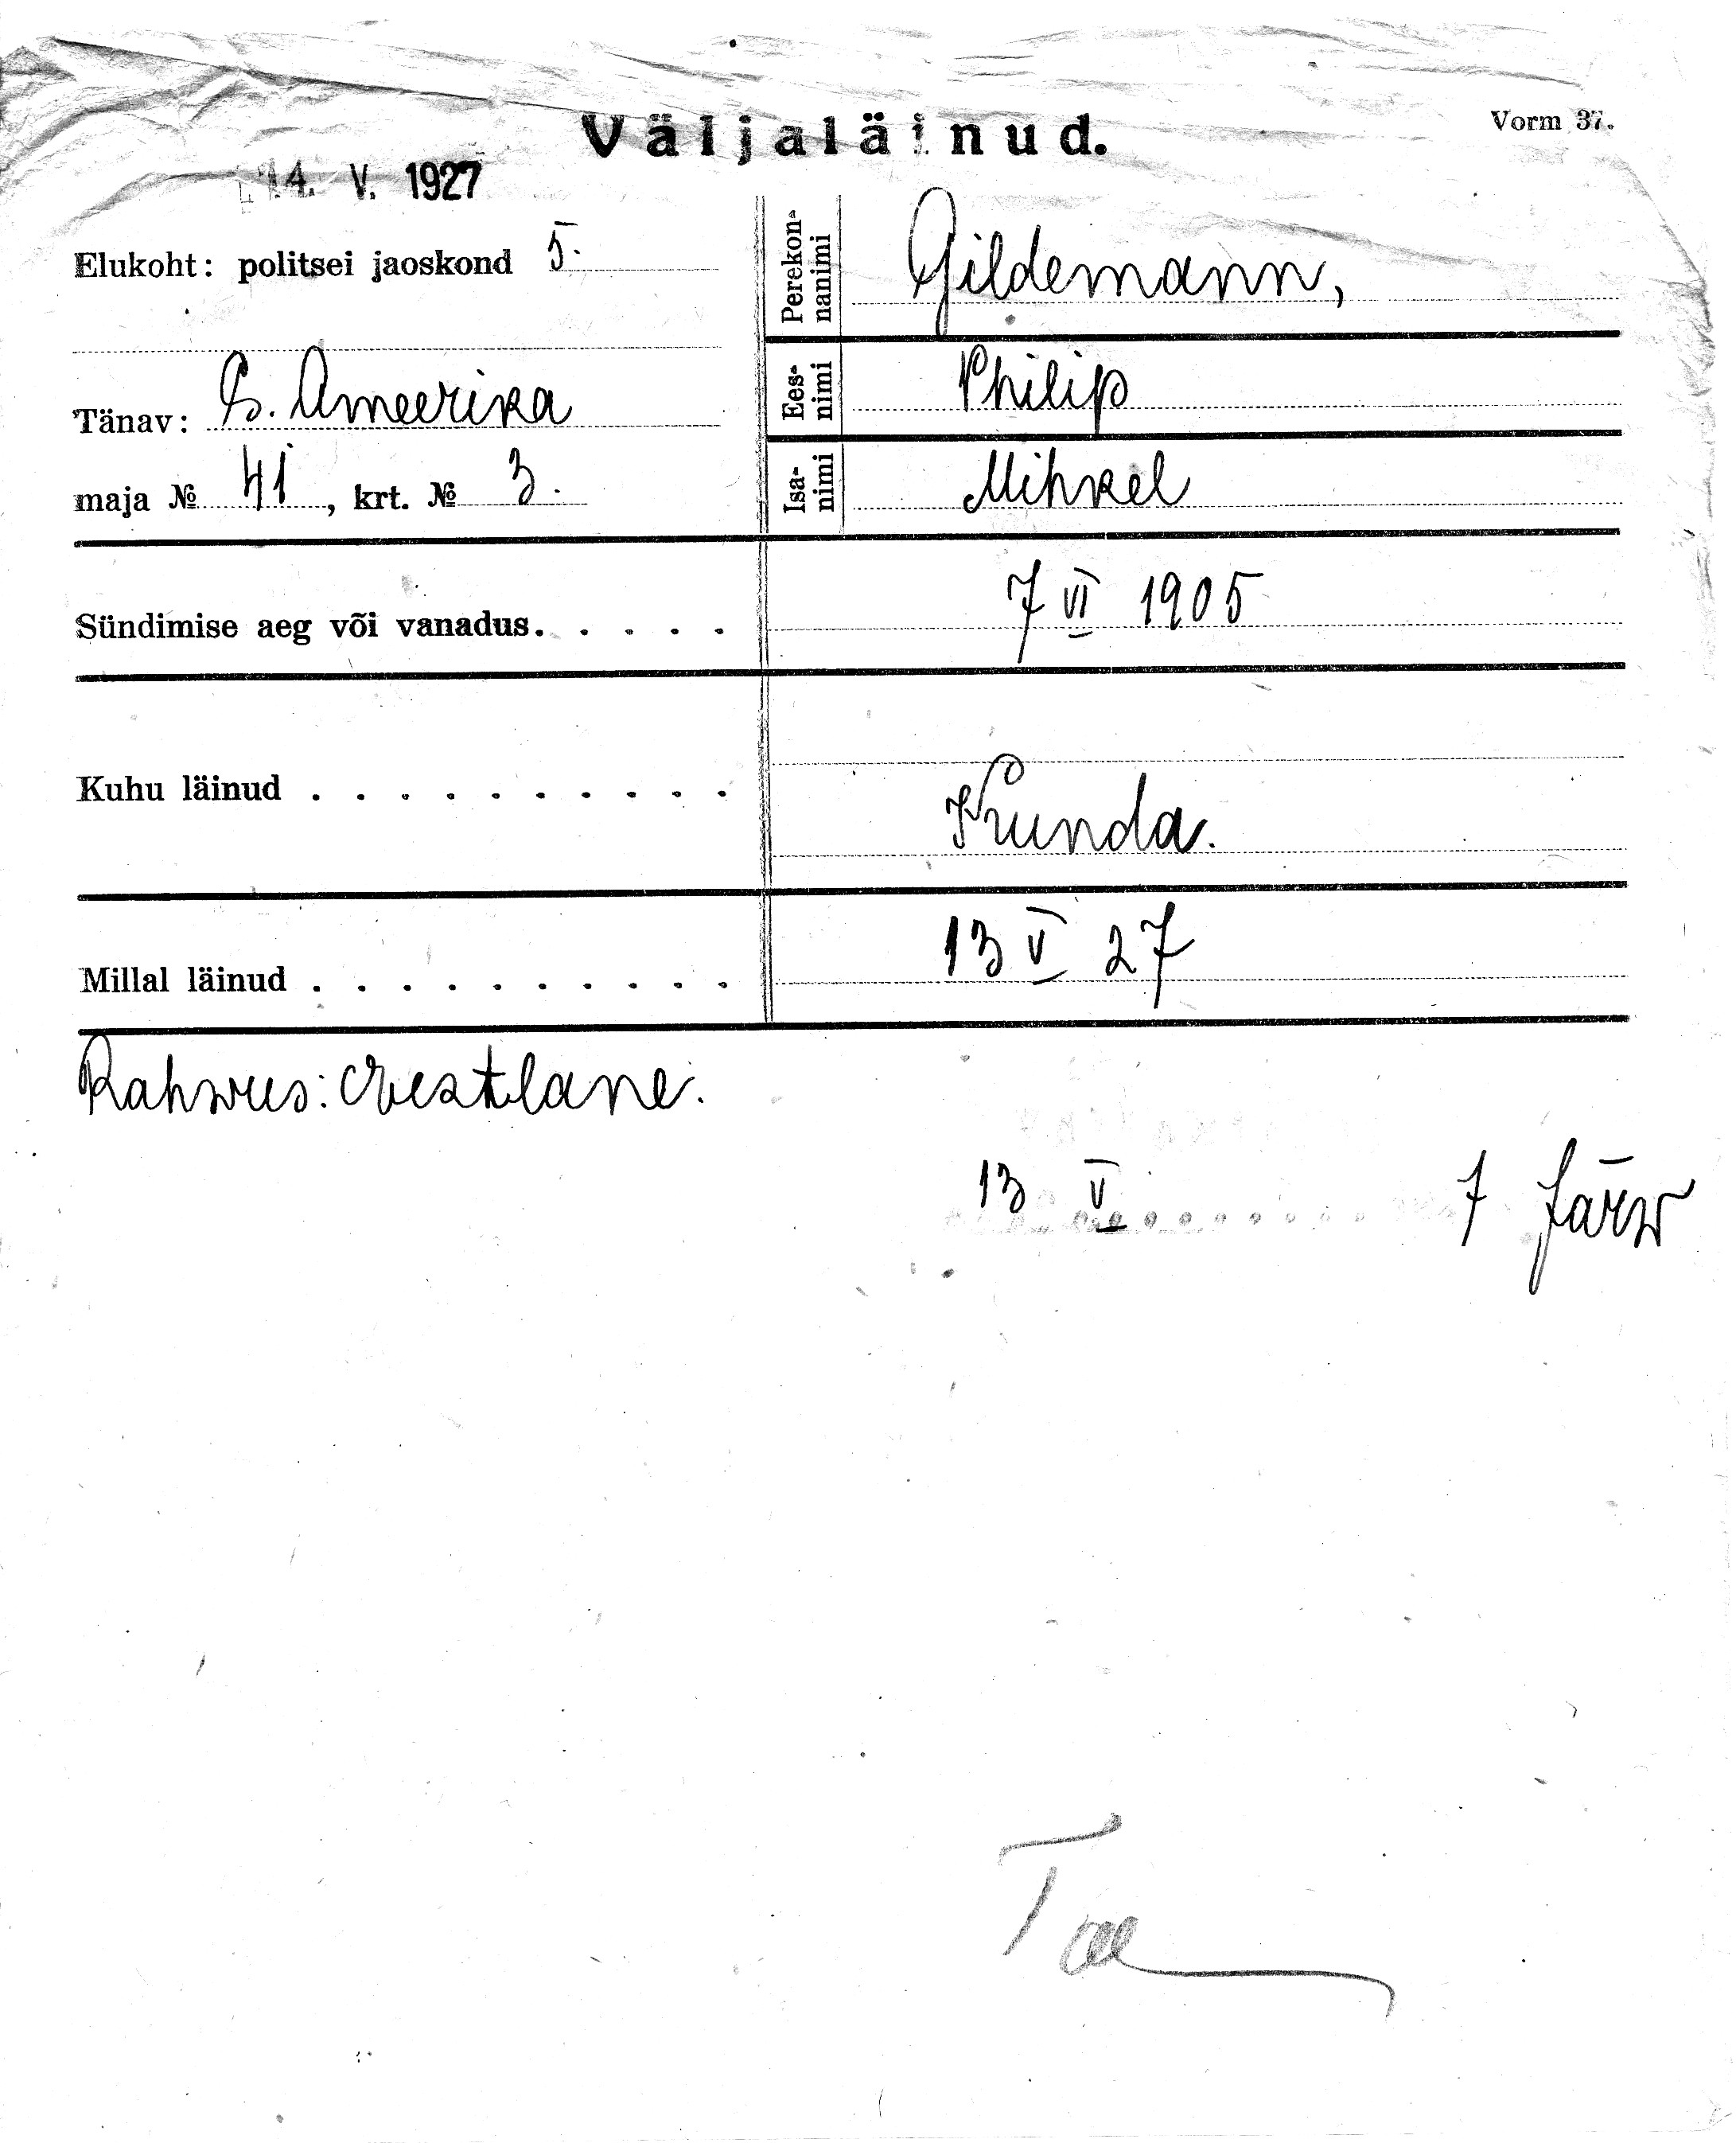 Väljaläinud.
Vorm 37.
14. V. 1927
Elukoht: politsei jaoskond 5.
Tänav: S. Ameerika
maja № 41, krt. № 3.
Perekonnanimi Gildemann,
Eesnimi Philip
Isanimi Mihkel
Sündimise aeg või vanadus. . . . . 7 VI 1905
Kuhu läinud . . . . . . . . . . Kunda.
Millal läinud . . . . . . . . . . 13 V 27
Rahwus: Eestlane.
13 V 7 Järw